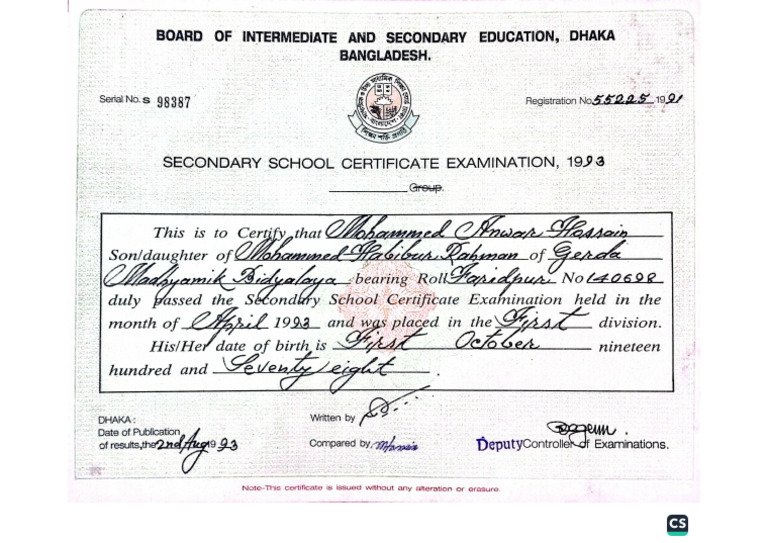 BOARD OF INTERMEDIATE AND SECONDARY EDUCATION, DHAKA
BANGLADESH.
Serial No. S 98387
Registration No. 55225 1991
SECONDARY SCHOOL CERTIFICATE EXAMINATION, 1993
Group.
This is to Certify that Mohammed Anwar Hossain
Son/daughter of Mohammed Habibur Rahman of Gerda
Madhyamik Bidyalaya bearing Roll Faridpur No 140698
duly passed the Secondary School Certificate Examination held in the
month of April 1993 and was placed in the First division.
His/Her date of birth is First October nineteen
hundred and Seventy eight.
DHAKA:
Date of Publication
of results, the 2nd Aug 1993
Written by
Compared by
Deputy Controller of Examinations.
Note-This certificate is issued without any alteration or erasure.
CS